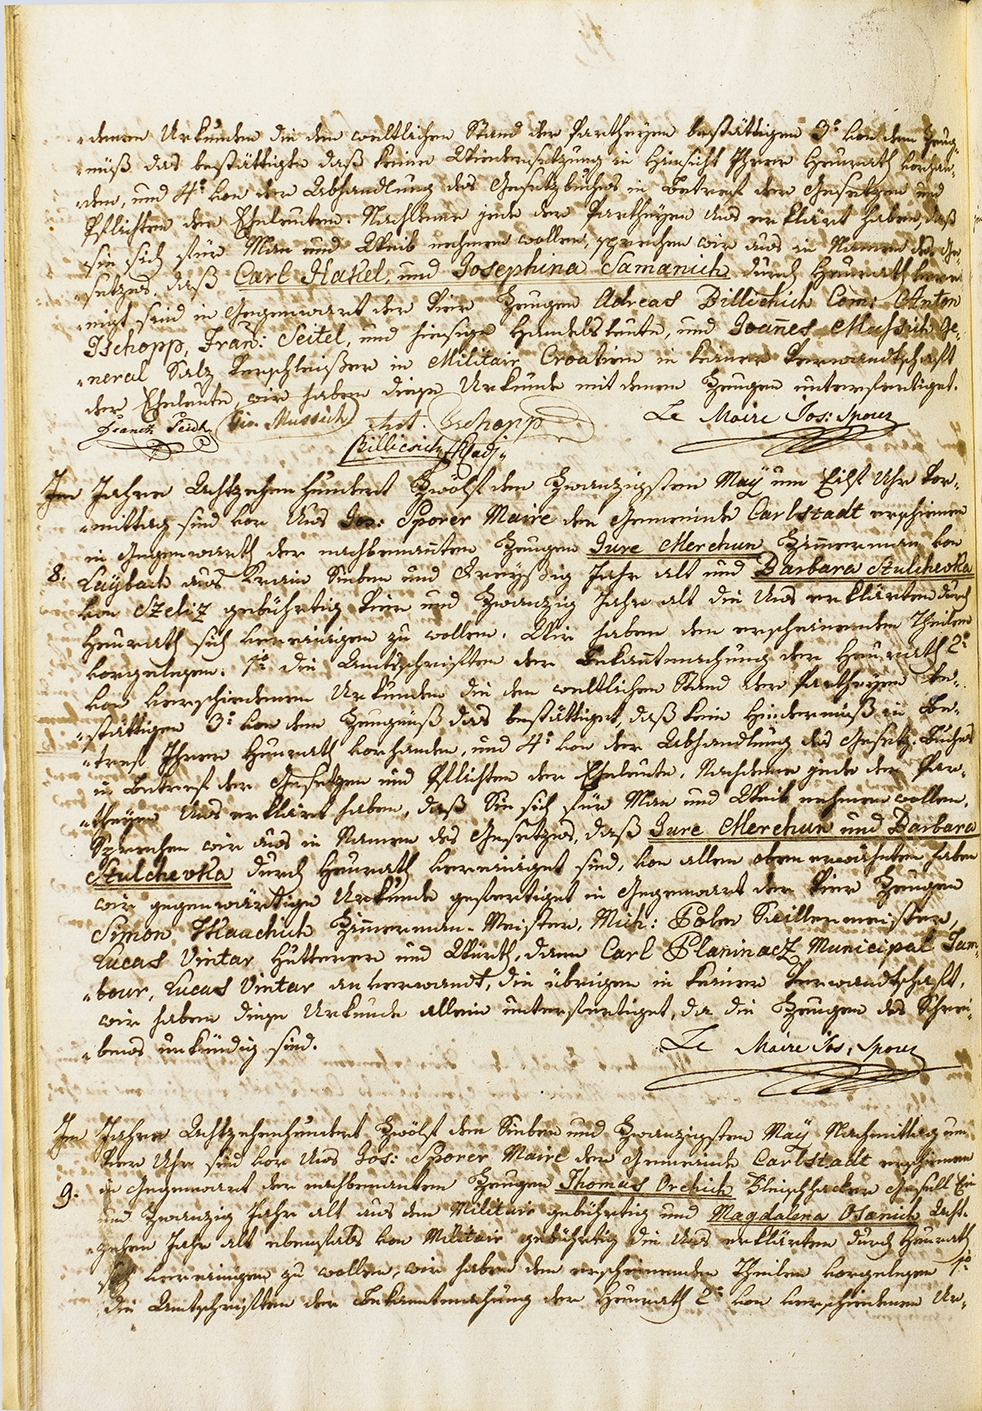 „denen Urkunden die den weltlichen Stand der Partheyen bestättigen 3° von dem Zeug„
„nüß das bestättigte daß keine Widersetzung in Hinsicht Ihrer Heurath vorhan„
„den, und 4° von der Abhandlung des Gesetzbuches in Betreff der Gesetzen und
Pflichten der Eheleuten. Nachdeme jede der Partheyen uns erklärt haben, daß
sie sich für Man und Weib nehmen wollen, sprechen wir aus in Namen des Ge„
„setzes, daß Carl Hakel, und Josephina Samanich durch Heurath vere„
„nigt sind in Gegenwart der vier Zeugen Adreas Billichich Com: Anton
Tschopp, Fran: Seitel, und hiesige Handelsleute, und Joanes Mussich Ge„
„neral Salz Verschleißer in Militair Croatien in keiner Verwandtschaft
der Eheleute, wir haben diese Urkunde mit denen Zeugen unterfertiget.
Le Maire Jos: Sporer
Gio. Mussich Ant. Tschopp
Billicsich
Im Jahre Achtzehenhundert Zwölf den Zwanzigsten May um Eilf Uhr Vor„
„mittag sind vor Uns Jos: Sporer Maire der Gemeinde Carlstadt erschienen
in Gegenwarth der nachbenannten Zeugen Jure Merchun Zimmerman von
8. Laybach aus Krain Sieben und Dreyßig Jahr alt und Barbara Stulchevka
von Szeliz gebührtig Vier und Zwanzig Jahr alt die Uns erklärten durch
Heurath sich vereinigen zu wollen. Wir haben den erscheinenden Theilen
vorgelesen. 1° die Amtsschriften der Bekantmachung der Heurath 2°
von verschiedenen Urkunden die den weltlichen Stand der Partheyen be„
„stättigen 3° von dem Zeugnüß das bestättiget, daß kein Hindernüß in Be„
„tref Ihrer Heurath vorhanden, und 4° von der Abhandlung des Gesetz-Buches
in Betref der Gesetzen und Pflichten der Eheleute. Nachdeme jede der Par„
„theyen Uns erklärt haben, daß Sie sich für Man und Weib nehmen wollen,
Sprechen wir aus in Namen des Gesetzes, daß Jure Merchun und Barbara
Stulchevka durch Heurath vereiniget sind, von allem oben erwähnten haben
wir gegenwärtige Urkunde gefertiget in Gegenwart der Vier Zeugen
Simon Klauchich Zimmerman-Meister, Mich: Polen Seillermeister,
Lucas Vintar Hutterer und Würth, dann Carl Planinacz Municipal Tam„
„bour, Lucas Vintar anverwandt, die übrigen in keiner Verwandtschaft,
wir haben diese Urkunde allein unterfertiget, da die Zeugen des Schrei„
„bens unkündig sind. Le Maire Jos: Sporer
Im Jahre Achtzehenhundert Zwölf den Sieben und Zwanzigsten May Nachmittag um
Vier Uhr sind vor Uns Jos: Sporer Maire der Gemeinde Carlstadt erschienen
9. in Gegenwart der nachbenanten Zeugen Thomas Orchich Fleischhacker Gesell Ein
und Zwanzig Jahr alt aus dem Militair gebührtig und Magdalena Osanich Acht„
„zehen Jahr alt ebenfals von Militair gebührtig die Uns erklärten durch Heurath
sich vereinigen zu wollen, wir haben den erscheinenden Theilen vorgelesen 1°
die Amtschriften der Bekantmachung der Heurath 2° von verschiedenen Ur„